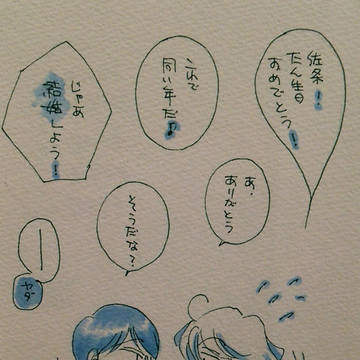 佐条！
たん生日
おめでとう！
これで
同い年だ♪
じゃあ
結婚しよう！
あ、
ありがとう
そうだな？
ー
ヤダ